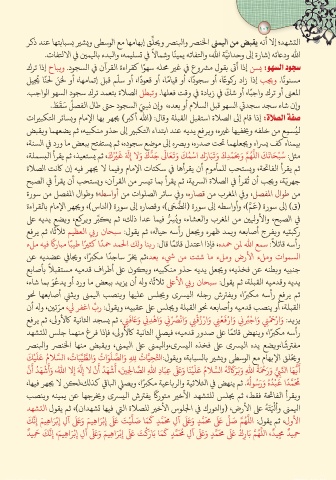 التشهد؛ إلا أنه يقبض من اليمنى الخنصر والبنصر ويحلق إبهامها مع الوسطى ويشير بسبابتها عند ذكر
الله ودعائه إشارة إلى وحدانية الله، والتفاته يمينًا وشمالاً في تسليمه، والبدء باليمين في الالتفات.
سجود السهو: يسن إذا أتى بقول مشروع في غير محله سهوًا كقراءة القرآن في السجود. ويباح إذا ترك
مسنونًا. ويجب إذا زاد ركوعًا، أو سجودًا، أو قيامًا، أو قعودًا، أو سلم قبل إتمامها، أو لحن لحنًا يحيل
المعنى أو ترك واجبًا، أو شك في زيادة في وقت فعلها. وتبطل الصلاة بتعمد ترك سجود السهو الواجب.
وإن شاء سجد سجدتي السهو قبل السلام أو بعده. وإن نسي السجود حتى طال الفصل سقط.
صفة الصلاة: إذا قام إلى الصلاة استقبل القبلة وقال: (الله أكبر) يجهر بها الإمام وبسائر التكبيرات
ليسمع من خلفه ويخفيها غيره، ويرفع يديه عند ابتداء التكبير إلى حذو منكبيه، ثم يضعهما ويقبض
بيمناه كف يسراه ويجعلهما تحت صدره، وبصره إلى موضع سجوده، ثم يستفتح ببعض ما ورد في السنة،
مثل: سبحانك اللهم وبحمدك وتبارك اسمك وتعالى جدك ولا إله غيرك، ثم يستعيذ، ثم يقرأ البسملة،
ثم يقرأ الفاتحة، ويستحب للمأموم أن يقرأها في سكتات الإمام وفيما لا يجهر فيه إن كانت الصلاة
جهرية، ويجب أن تقرأ في الصلاة السرية، ثم يقرأ بما تيسر من القرآن، ويستحب أن يقرأ في الصبح
من طوال المفصل، وفي المغرب من قصاره، وفي سائر الصلوات من أواسطه؛ وطوال المفصل من سورة
(ق) إلى سورة (عم)، وأواسطه إلى سورة (الضحى)، وقصاره إلى سورة (الناس)، ويجهر الإمام بالقراءة
في الصبح، والأوليين من المغرب والعشاء، ويسر فيما عدا ذلك، ثم يكبر ويركع، ويضع يديه على
ركبتيه ويفرج أصابعه ويمد ظهره ويجعل رأسه حياله، ثم يقول: سبحان ربي العظيم ثلاثًا، ثم يرفع
رأسه قائلاً: سمع الله لمن حمده، فإذا اعتدل قائمًا قال: ربنا ولك الحمد حمدًا كثيرًا طيبًا مباركًا فيه ملء
السموات وملء الأرض وملء ما شئت من شيء بعد، ثم يخر ساجدًا مكبرًا، ويجافي عضديه عن
جنبيه وبطنه عن فخذيه، ويجعل يديه حذو منكبيه، ويكون على أطراف قدميه مستقبلاً بأصابع
يديه وقدميه القبلة، ثم يقول: سبحان ربي الأعلى ثلاثًا، وله أن يزيد ببعض ما ورد أو يدعو بما شاء،
ثم يرفع رأسه مكبرًا، ويفترش رجله اليسرى ويجلس عليها وينصب اليمنى ويثني أصابعها نحو
القبلة، أو ينصب قدميه وأصابعه نحو القبلة ويجلس على عقبيه، ويقول: رب اغفر لي، مرتين، وله أن
يزيد: وارحمني واجبرني وارفعني وارزقني وانصرني واهدني وعافني، ثم يسجد الثانية كالأولى، ثم يرفع
رأسه مكبرًا، وينهض قائمًا على صدور قدميه، فيصلي الثانية كالأولى، فإذا فرغ منهما جلس للتشهد
مفترشًا، ويضع يده اليسرى على فخذه اليسرى، واليمنى على اليمنى، ويقبض منها الخنصر والبنصر
ويحلق الإبهام مع الوسطى ويشير بالسبابة، ويقول: التحيات لله والصلوات والطيبات، السلام عليك
أيها النبي ورحمة الله وبركاته السلام علينا وعلى عباد الله الصالحين، أشهد أن لا إله إلا الله، وأشهد أن
محمدًا عبده ورسوله، ثم ينهض في الثلاثية والرباعية مكبرًا، ويصلي الباقي كذلك، لكن لا يجهر فيها،
ويقرأ الفاتحة فقط، ثم يجلس للتشهد الأخير متوركًا يفترش اليسرى ويخرجها عن يمينه وينصب
اليمنى وأليتيه على الأرض، (والتورك في الجلوس الأخير للصلاة التي فيها تشهدان)، ثم يقول التشهد
الأول، ثم يقول: اللهم صل على محمد وعلى آل محمد كما صليت على إبراهيم وعلى آل إبراهيم إنك
حميد مجيد، اللهم بارك على محمد وعلى آل محمد كما باركت على إبراهيم وعلى آل إبراهيم، إنك حميد